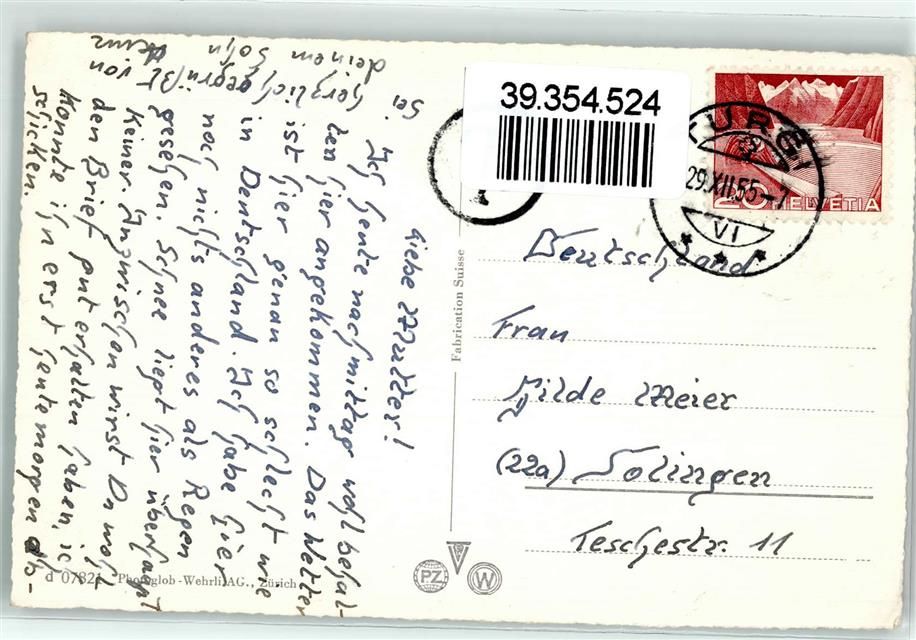 Liebe Mutter!
Ich heute nachmittag wohlbehal-
ten hier angekommen. Das Wetter
ist hier genau so schlecht wie
in Deutschland. Ich habe hier
noch nichts anderes als Regen
gesehen. Schnee liegt hier überhaupt
keiner. Inzwischen wirst Du wohl
den Brief gut erhalten haben, ich
konnte ihn erst heute morgen ab-
schicken.
Sei
herzlich gegrüßt von
deinem Sohn
39.354.524
29.XII.55
VI
20 HELVETIA
Deutschland
Frau
Hilde Meier
(22a) Solingen
Teschestr. 11
Fabrication Suisse
d 07821 Photoglob-Wehrli AG., Zürich
PZ
W